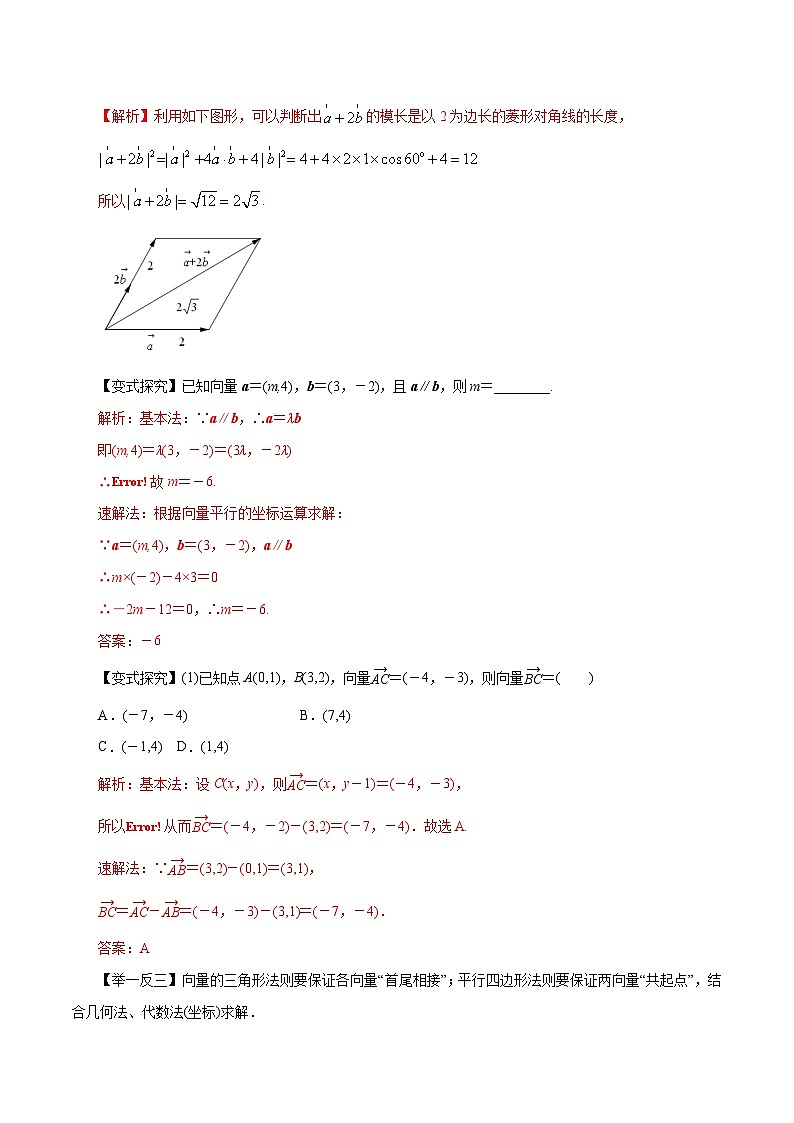 【解析】利用如下图形，可以判断出a+2b的模长是以2为边长的菱形对角线的长度，
|a+2b|²=|a|²+4a·b+4|b|²=4+4×2×1×cos60°+4=12
所以|a+2b|=√12=2√3.
2b⃗ 2 a⃗+2b⃗
2√3
a⃗ 2
【变式探究】已知向量a＝(m,4)，b＝(3，－2)，且a∥b，则m＝________.
解析：基本法：∵a∥b，∴a＝λb
即(m,4)＝λ(3，－2)＝(3λ，－2λ)
∴Error!故m＝－6.
速解法：根据向量平行的坐标运算求解：
∵a＝(m,4)，b＝(3，－2)，a∥b
∴m×(－2)－4×3＝0
∴－2m－12＝0，∴m＝－6.
答案：－6
【变式探究】(1)已知点A(0,1)，B(3,2)，向量AC→＝(－4，－3)，则向量BC→＝(　　)
A．(－7，－4) B．(7,4)
C．(－1,4) D．(1,4)
解析：基本法：设C(x，y)，则AC→＝(x，y－1)＝(－4，－3)，
所以Error!从而BC→＝(－4，－2)－(3,2)＝(－7，－4)．故选A.
速解法：∵AB→＝(3,2)－(0,1)＝(3,1)，
BC→＝AC→－AB→＝(－4，－3)－(3,1)＝(－7，－4)．
答案：A
【举一反三】向量的三角形法则要保证各向量“首尾相接”；平行四边形法则要保证两向量“共起点”，结
合几何法、代数法(坐标)求解．